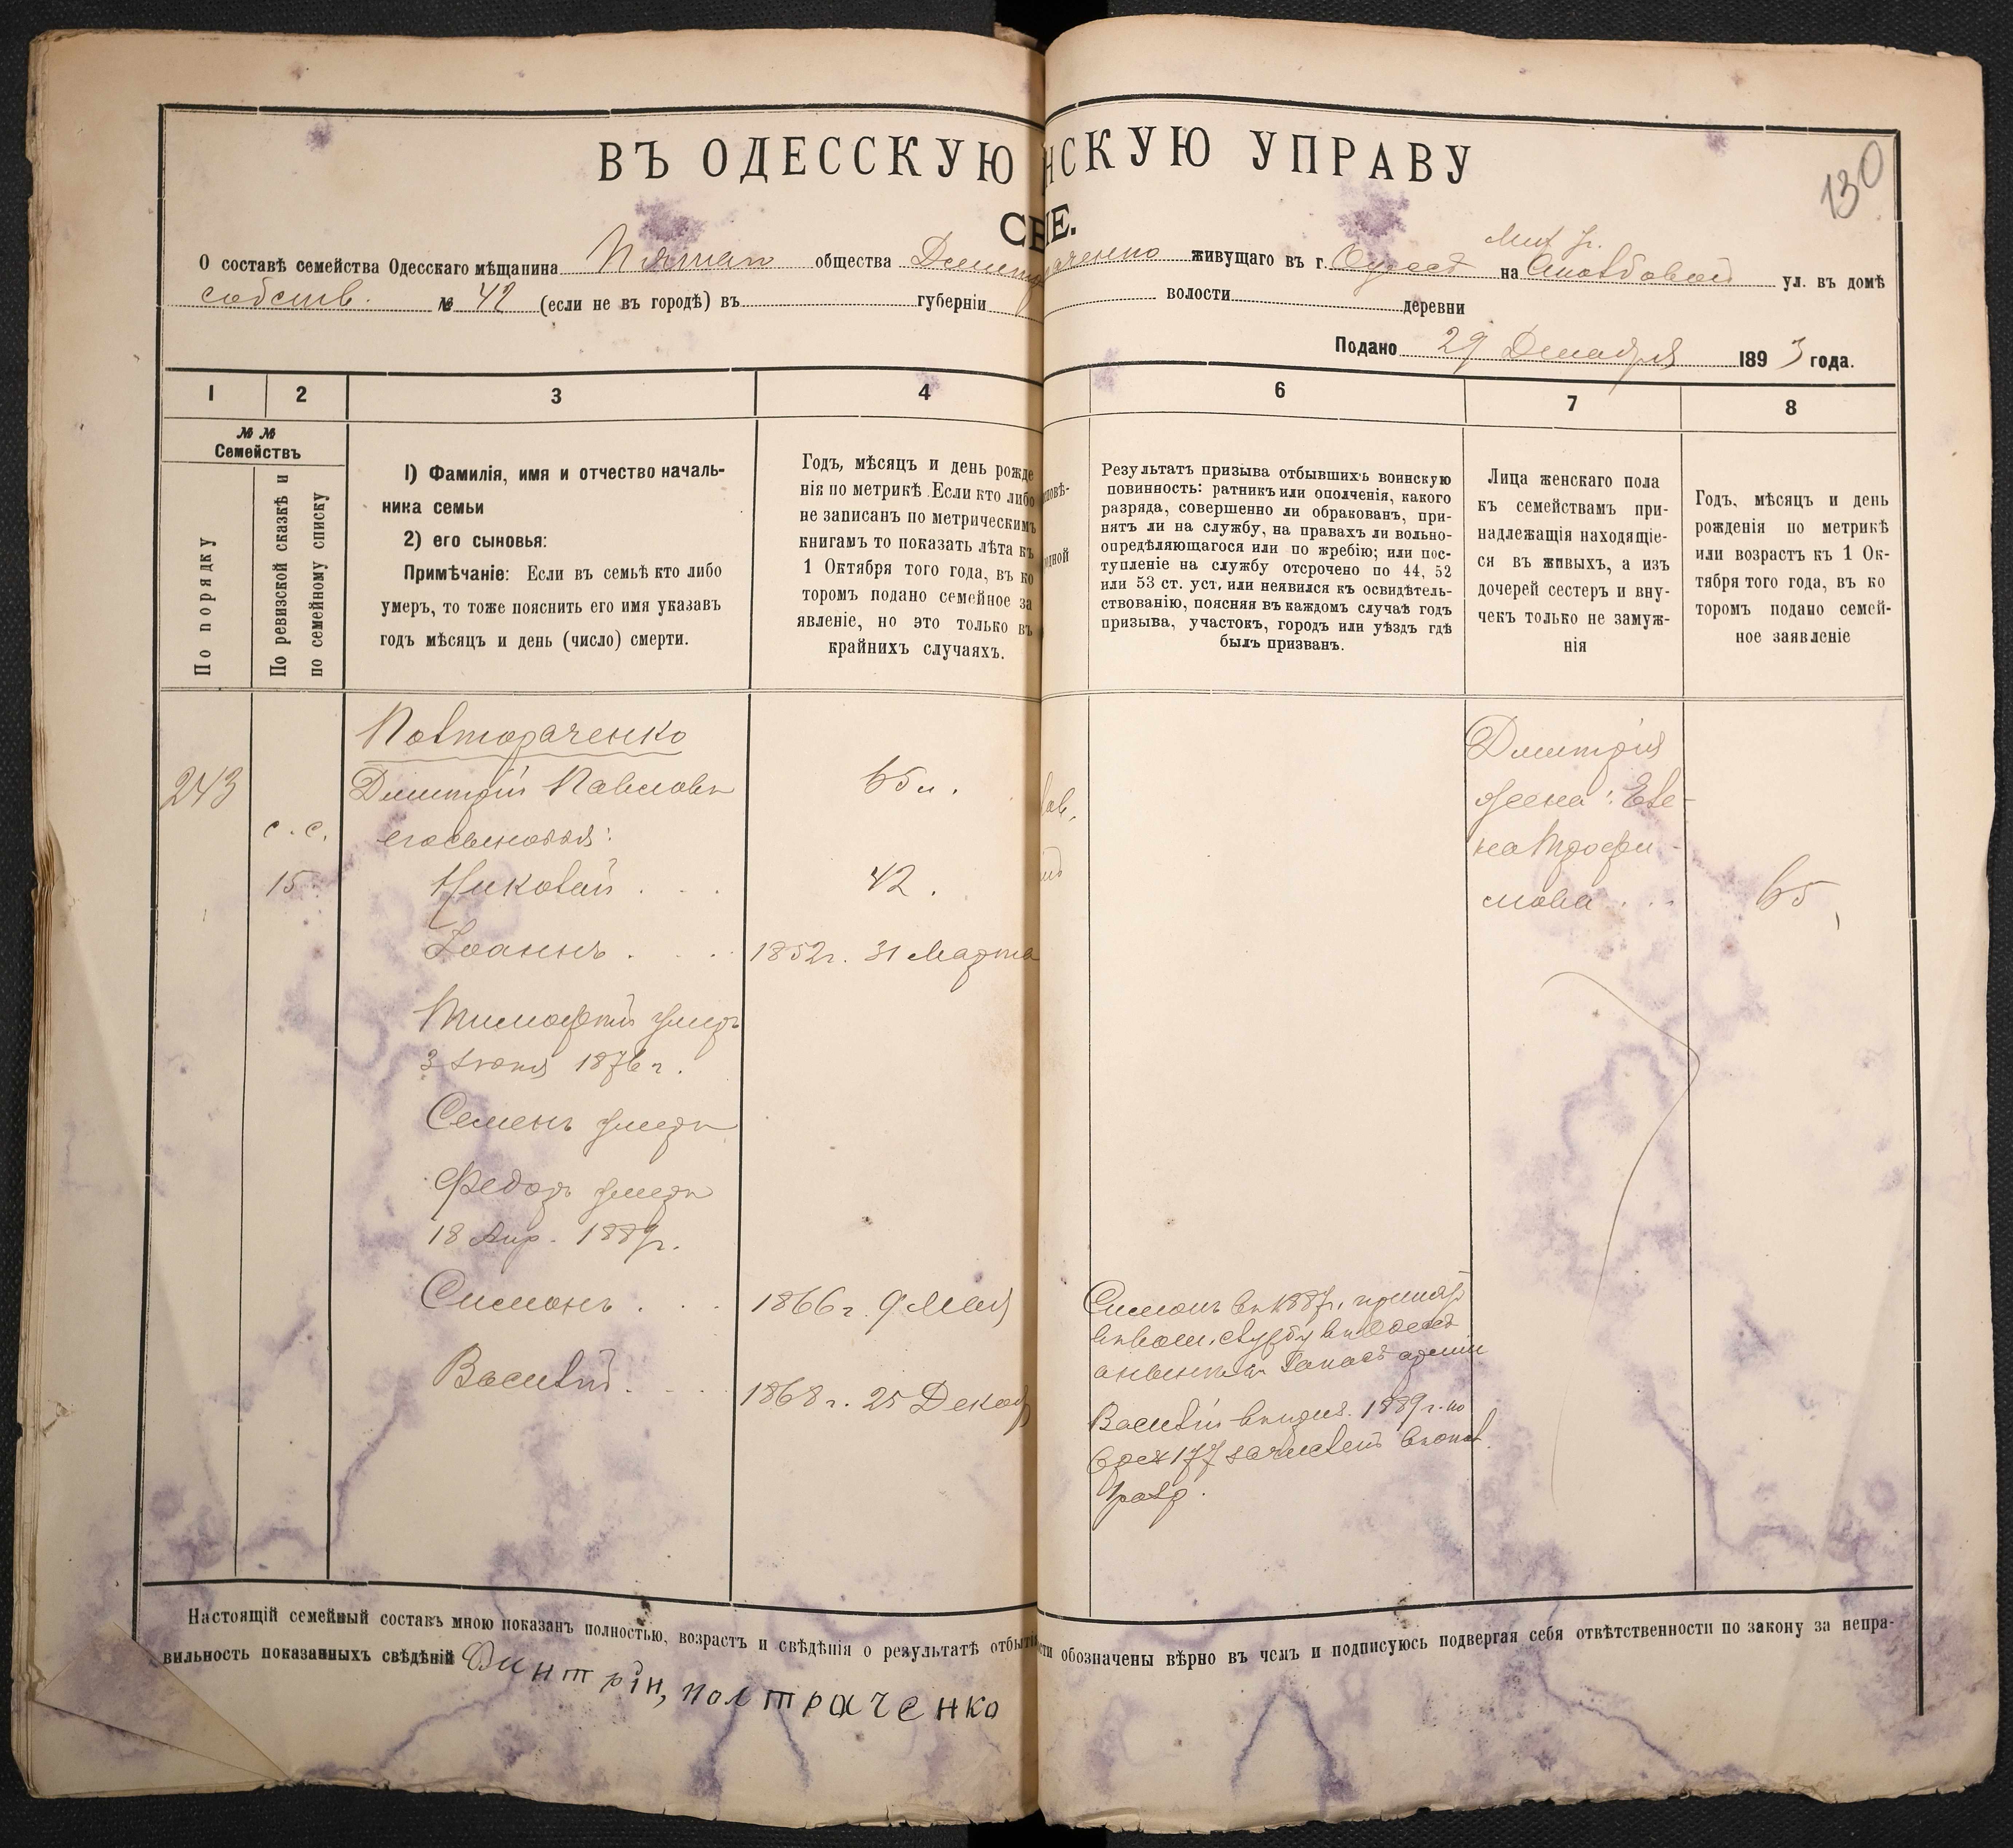 130
ВЪ ОДЕССКУЮ НСКУЮ УПРАВУ
СЕ IE.
О составѣ семейства Одесскаго мѣщанина общества живущаго въ г. Одессѣ на ул. въ домѣ
собств. № 42 (если не въ городѣ) въ губерніи волости деревни
Подано 29 Декабря 1893 года.
1 2 3 4 6 7 8
№ №
Семействъ
По порядку
По ревизской сказкѣ и
по семейному списку
1) Фамилія, имя и отчество началь-
ника семьи
2) его сыновья:
Примѣчаніе: Если въ семьѣ кто либо
умеръ, то тоже пояснить его имя указавъ
годъ мѣсяцъ и день (число) смерти.
Годъ, мѣсяцъ и день рожде
нія по метрикѣ. Если кто либо
не записанъ по метрическимъ
книгамъ то показать лѣта къ
1 Октября того года, въ ко
торомъ подано семейное за
явленіе, но это только въ
крайнихъ случаяхъ.
Результатъ призыва отбывшихъ воинскую
повинность: ратникъ или ополченія, какого
разряда, совершенно ли обракованъ, при-
нятъ ли на службу, на правахъ ли вольно-
опредѣляющагося или по жребію; или пос-
тупленіе на службу отсрочено по 44, 52
или 53 ст. уст, или неявился къ освидѣтель-
ствованію, поясняя въ каждомъ случаѣ годъ
призыва, участокъ, городъ или уѣздъ гдѣ
былъ призванъ.
Лица женскаго пола
къ семействамъ при-
надлежащія находящіе-
ся въ живыхъ, а изъ
дочерей сестеръ и вну-
чекъ только не замуж-
нія
Годъ, мѣсяцъ и день
рожденія по метрикѣ
или возрастъ къ 1 Ок-
тября того года, въ ко
торомъ подано семей-
ное заявленіе
Полтораченко
243 Дмитрій Павловъ 65 л.
с. с. его сыновья:
15 Николай . . . 42.
Іоаннъ . . . 1852 г. 31 Марта
Тимофей умеръ
3 Іюня 1876 г.
Семенъ умеръ
Федоръ умеръ
18 Апр. 1889 г.
Симонъ . . . 1866 г. 9 Мая
Василій . . . 1868 г. 25 Декаб
Симонъ въ 1887 г. принятъ
Василій въ 1889 г. по
жреб 177 зачисленъ в ополч.
1 разр.
Дмитрія
жена: Еле-
на Трофи-
мова . . . 65
Настоящій семейный составъ мною показанъ полностью, возрастъ и свѣдѣнія о результатѣ отбытія сти обозначены вѣрно въ чемъ и подписуюсь подвергая себя отвѣтственности по закону за непра-
вильность показанныхъ свѣдѣній Дмитрій, полтраченко